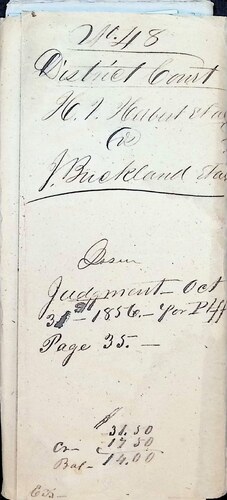 No. 48
District Court
H. I. Herbert et al
vs
J. Buckland
Judgment Oct
31st 1856 - for Plff
Page 35. -
$ 31.50
Cr - 17 50
Bal - 14.00